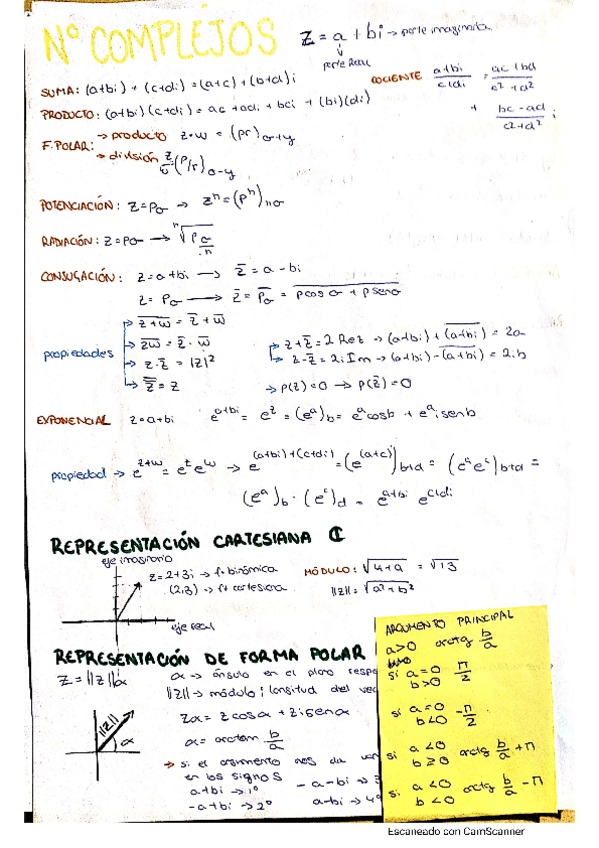 Nº COMPLEJOS
z = a + bi → parte imaginaria
↓
parte Real
SUMA: (a+bi) + (c+di) = (a+c) + (b+d)i
COCIENTE (a+bi)/(c+di) = (ac+bd)/(c²+d²) + (bc-ad)/(c²+d²) i
PRODUCTO: (a+bi)(c+di) = ac + adi + bci + (bi)(di)
F. POLAR:
→ producto z·w = (pr)σ+y
→ división z/w = (p/r)σ-y
POTENCIACIÓN: z = pσ → zⁿ = (pⁿ)nσ
RADIACIÓN: z = pσ →
CONJUGACIÓN: z = a+bi → z̅ = a - bi
z = pσ → z̅ = p̅σ̅ = p cos σ + p sen σ
propiedades
z+w = z̅ + w̅
zw = z̅ · w̅
z·z̅ = |z|²
z̿ = z
z + z̅ = 2 Re z → (a+bi) + (a+bi) = 2a
z - z̅ = 2i Im → (a+bi) - (a+bi) = 2·b
→ p(z) = 0 → p(z̅) = 0
EXPONENCIAL z = a+bi e^(a+bi) = e^z = (e^a)b = e^a cos b + e^a i sen b
propiedad → e^(z+w) = e^z e^w → e^((a+bi)+(c+di)) = (e^(a+c))b+d = (e^a e^c)b+d =
(e^a)b · (e^c)d = e^(a+bi) e^(c+di)
REPRESENTACIÓN CARTESIANA ℂ
eje imaginario
z = 2+3i → f. binómica
(2,3) → f. cartesiana
eje real
MÓDULO: √(4+9) = √13
||z|| = √(a²+b²)
REPRESENTACIÓN DE FORMA POLAR
z = ||z||α
α → ángulo en el plano
||z|| → módulo; longitud del
||z||
α
zα = z cos α + z i sen α
α = arctan b/a
→ si el argumento nos da
en los signos
a+bi → 1º
-a+bi → 2º
-a-bi →
a-bi → 4º
ARGUMENTO PRINCIPAL
a>0 arctg b/a
si a=0 b>0 π/2
si a=0 b<0 -π/2
si a<0 b≥0 arctg b/a + π
si a<0 b<0 arctg b/a - π
Escaneado con CamScanner